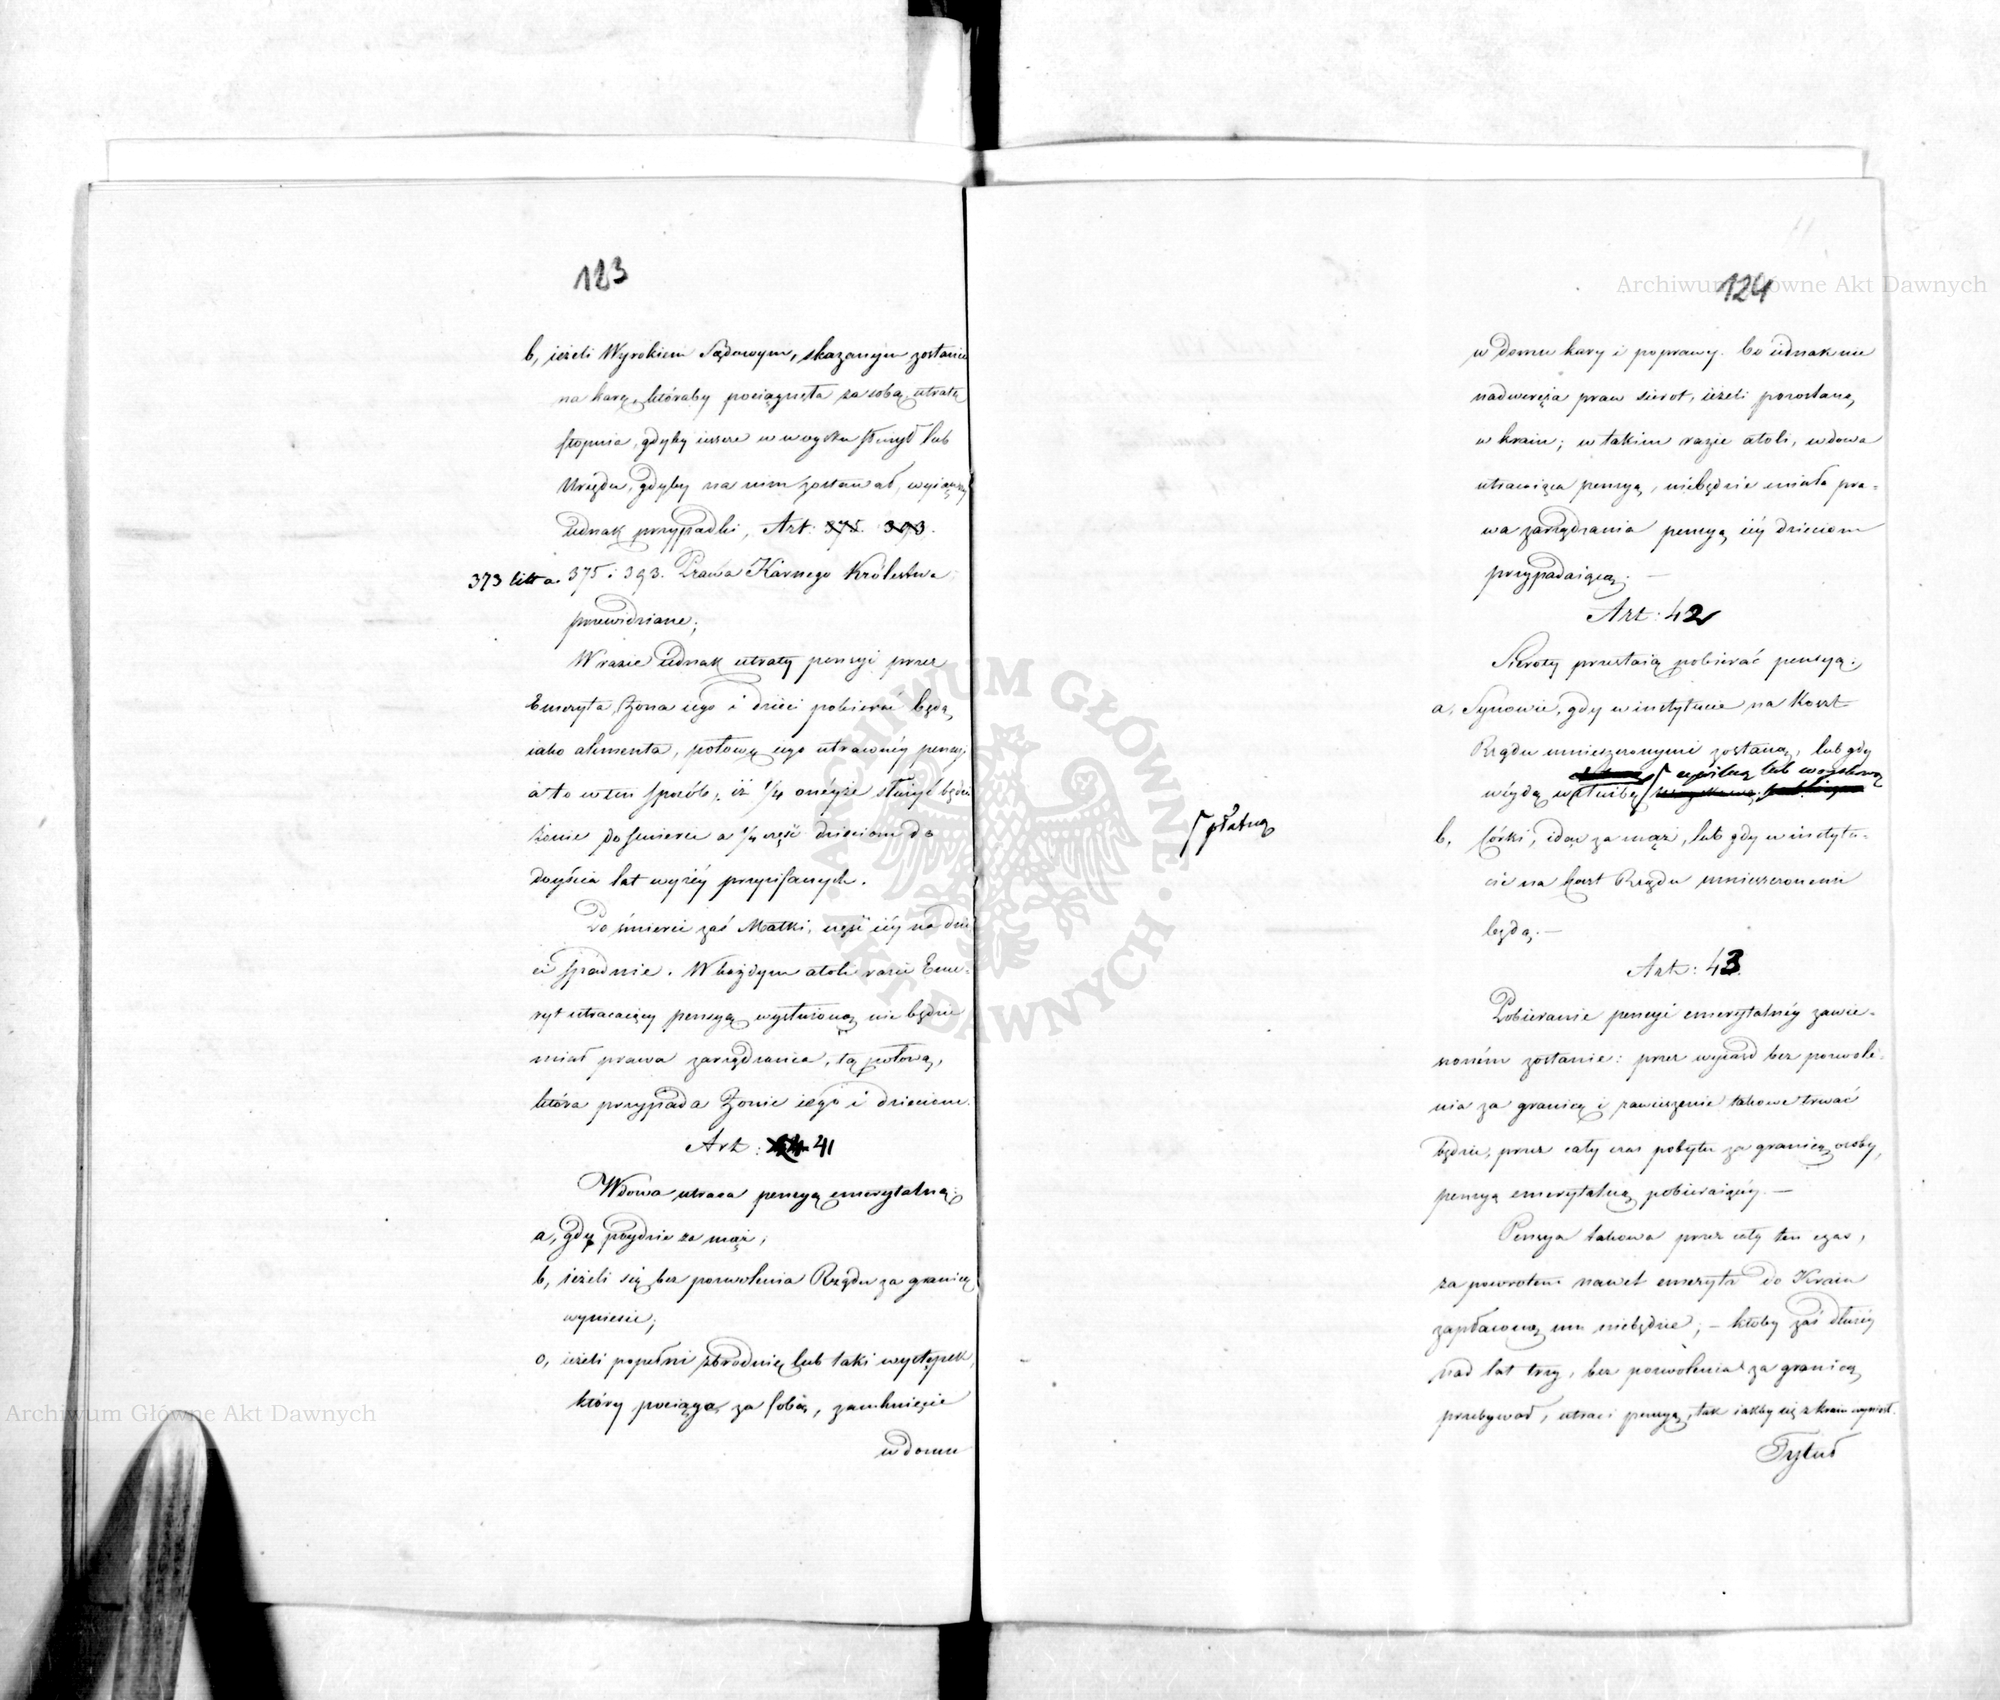 123
b, ieżeli Wyrokiem Sądowym, skazanym zostanie
na karę, któraby pociągnęła za sobą, utratę
stopnia, gdyby ieszcze w woysku służył lub
Urzędu, gdyby na nim zostawał, wyiąwszy
iednak przypadki, Art: 375. 393.
373 litt a. 375 i 393. Prawa Karnego Królestwa
przewidziane;
W razie iednak utraty pensyi przez
Emeryta, Żona iego i dzieci pobierać będą,
iako alimenta, połowę iego utraconéy pensyi
a to w ten sposób, iż 1/4 onéyże służyć będzie
żonie do śmierci a 1/4 część dzieciom do
doyścia lat wyżéy przepisanych.
Po śmierci zaś Matki, część iéy na dzie
ci spadnie. W każdym atoli razie Eme-
ryt utracaiący pensyą wysłużoną nie będzie
miał prawa zarządzania, tą połową,
która przypada Żonie iego i dzieciom.
Art: 41
Wdowa utraca pensyą emerytalną:
a, gdy póydzie za mąż;
b, ieżeli się bez pozwolenia Rządu za granicę
wyniesie;
c, ieżeli popełni zbrodnię lub taki występek,
który pociąga za sobą, zamknięcie
w domu
124
w domu kary i poprawy. Co iednak nie
nadweręża praw sierot, ieżeli pozostaną,
w kraiu; w takim razie atoli, wdowa
utracaiąca pensyą, niebędzie miała pra-
wa zarządzania pensyą iéy dzieciom
przypadaiącą. —
Art: 42
Sieroty przestaią pobierać pensyą:
a, Synowie, gdy w instytucie na koszt
Rządu umieszczonymi zostaną, lub gdy
cywilną lub woyskową
wéydą w służbę
płatną
b, Córki, idąc za mąż, lub gdy w instytu-
cie na koszt Rządu umieszczonemi
będą. —
Art: 43.
Pobieranie pensyi emerytalnéy zawie-
szoném zostanie: przez wyiazd bez pozwole-
nia za granicę i zawieszenie takowe trwać
będzie, przez cały czas pobytu za granicą osoby,
pensyą emerytalną pobieraiącéy. —
Pensya takowa przez cały ten czas,
za powrotem nawet emeryta do Kraiu
zapłaconą mu niebędzie; — ktoby zaś dłużéy
nad lat trzy, bez pozwolenia za granicą
przebywał, utraci pensyą, tak iakby się z kraiu wyniósł.
Tytuł
Archiwum Główne Akt Dawnych
Archiwum Główne Akt Dawnych
ARCHIWUM GŁÓWNE AKT DAWNYCH